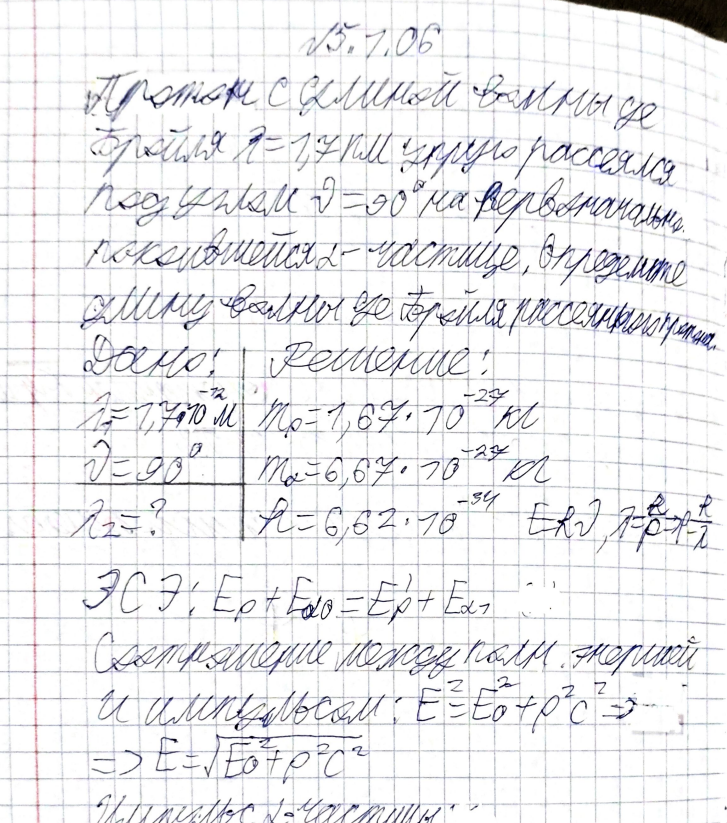 √5.1.06
Протон с длиной волны де
Бройля λ=1,7 пм упруго рассеялся
под углом ϑ=90° на первоначально
покоившейся α-частице. Определите
длину волны де Бройля рассеянного протона.
Дано: Решение:
λ₁=1,7·10⁻¹² м mₚ=1,67·10⁻²⁷ кг
ϑ=90° mα=6,67·10⁻²⁷ кг
λ₂=? h=6,62·10⁻³⁴ E=hν, λ=h/p⇒p=h/λ
ЗСЭ: Eₚ+Eα₀=E'ₚ+Eα₁
Соотношение между полн. энергией
и импульсом: E²=E₀²+p²c² ⇒
=> E=√(E₀²+p²c²)
Импульс α-частицы: